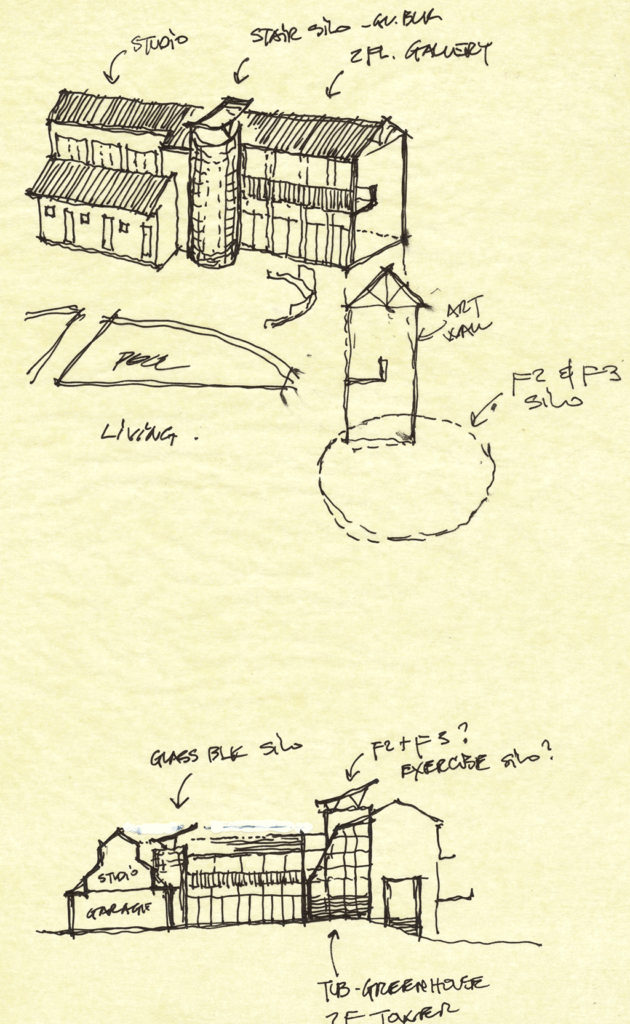 STUDIO
STAIR SILO - GL. BLK
2 FL. GALLERY
ART
WALL
POOL
F2 & F3
SILO
LIVING.
GLASS BLK SILO
F2 + F3?
EXERCISE SILO?
STUDIO
GARAGE
TUB-GREENHOUSE
2F TOWER